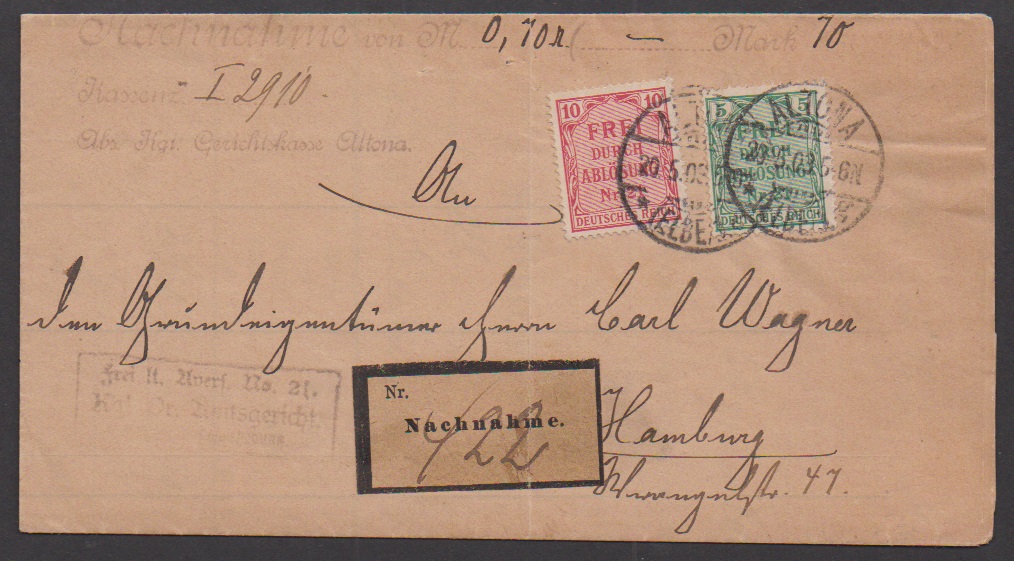 Nachnahme von M 0,70 ₰ ( — Mark 70
Kassenz. I 2910.
Abs. Kgr. Gerichtskasse Altona.
An
10 10
FREI
DURCH
ABLÖSUNG
Nr. 21
DEUTSCHES REICH
5 5
FREI
DURCH
ABLÖSUNG
Nr. 21
DEUTSCHES REICH
20.5.03
(ELBE)
ALTONA
20.5.03.5-6N
(ELBE)
den Grundeigentümer Herrn Carl Wagner
Frei lt. Avers. No. 21.
Kgl. Pr. Amtsgericht.
Nr.
Nachnahme.
422
Hamburg
Wrangelstr. 47.